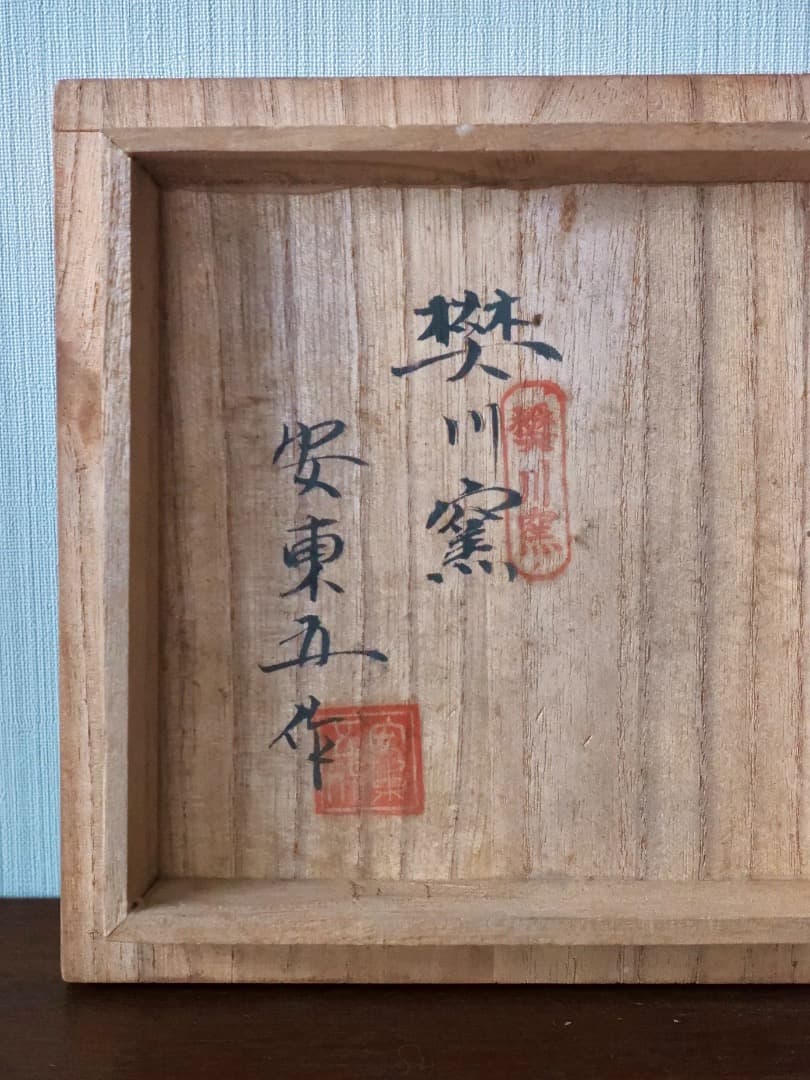 樊川窯
樊川窯
安東五作
安東